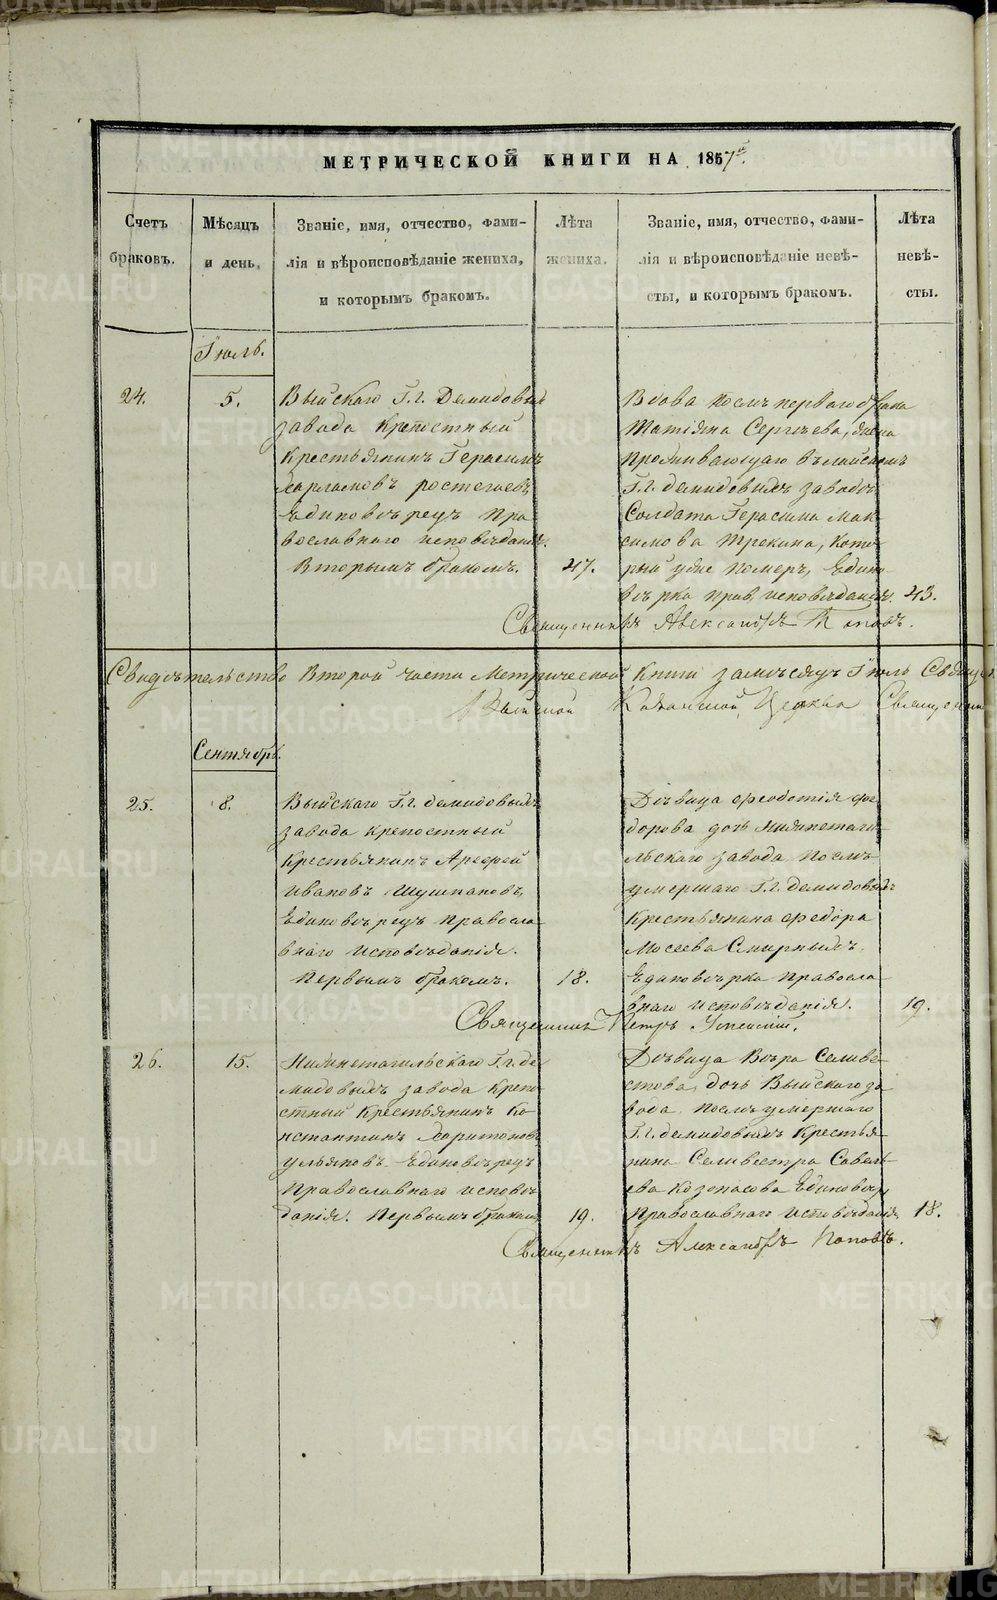 МЕТРИЧЕСКОЙ КНИГИ НА 1857й.
Счетъ браковъ.
Мѣсяцъ и день.
Званіе, имя, отчество, фами-
лія и вѣроисповѣданіе жениха,
и которымъ бракомъ.
Лѣта жениха.
Званіе, имя, отчество, фами-
лія и вѣроисповѣданіе невѣ-
сты, и которымъ бракомъ.
Лѣта невѣ-
сты.
Іюль.
24.
5.
Выйскаго Г.г. Демидовыхъ
завода крепостный
крестьянинъ Герасимъ
Харламовъ ростегаевъ
Единовѣрецъ Пра
вославнаго исповѣданія.
Вторымъ бракомъ.
47.
Вдова послѣ перваго брака
Татіяна Сергѣева, жена
проживающаго въ
Г.г. демидовыхъ заводѣ
Солдата Герасима Мак
симова Трекина, кото
рый уже померъ, Едино
вѣрка прав. исповѣданія.
43.
Священникъ Александръ Поповъ.
Свидѣтельство Второй части Метрической Книги за мѣсяцъ Іюль
Выйской Казанской Церкви Священни
Сентябрь.
25.
8.
Выйскаго Г.г. демидовыхъ
завода крепостный
Крестьянинъ Арефей
Ивановъ Шушпановъ,
Единовѣрецъ правосла
внаго исповѣданія.
Первымъ бракомъ.
18.
Дѣвица Феодотія фе
дорова дочь Нижнетаги
льскаго завода послѣ
умершаго Г.г. демидовыхъ
Крестьянина Федора
Мосеева Смирныхъ.
Единовѣрка Правосла
внаго исповѣданія.
19.
Священникъ Петръ Успенскій.
26.
15.
Нижнетагильскаго Г.г. де
мидовыхъ завода крепо
стный Крестьянинъ Ко
нстантинъ Харитоновъ
ульяновъ Единовѣрецъ
Православнаго исповѣ
данія. Первымъ бракомъ
19.
Дѣвица Вѣра Селиве
стова, дочь Выйскаго за
вода послѣ умершаго
Г.г. демидовыхъ Крестья
нина Селивестра Савель
ева Козопасова
Православнаго исповѣданія
18.
Священникъ Александръ Поповъ.
METRIKI.GASO-URAL.RU